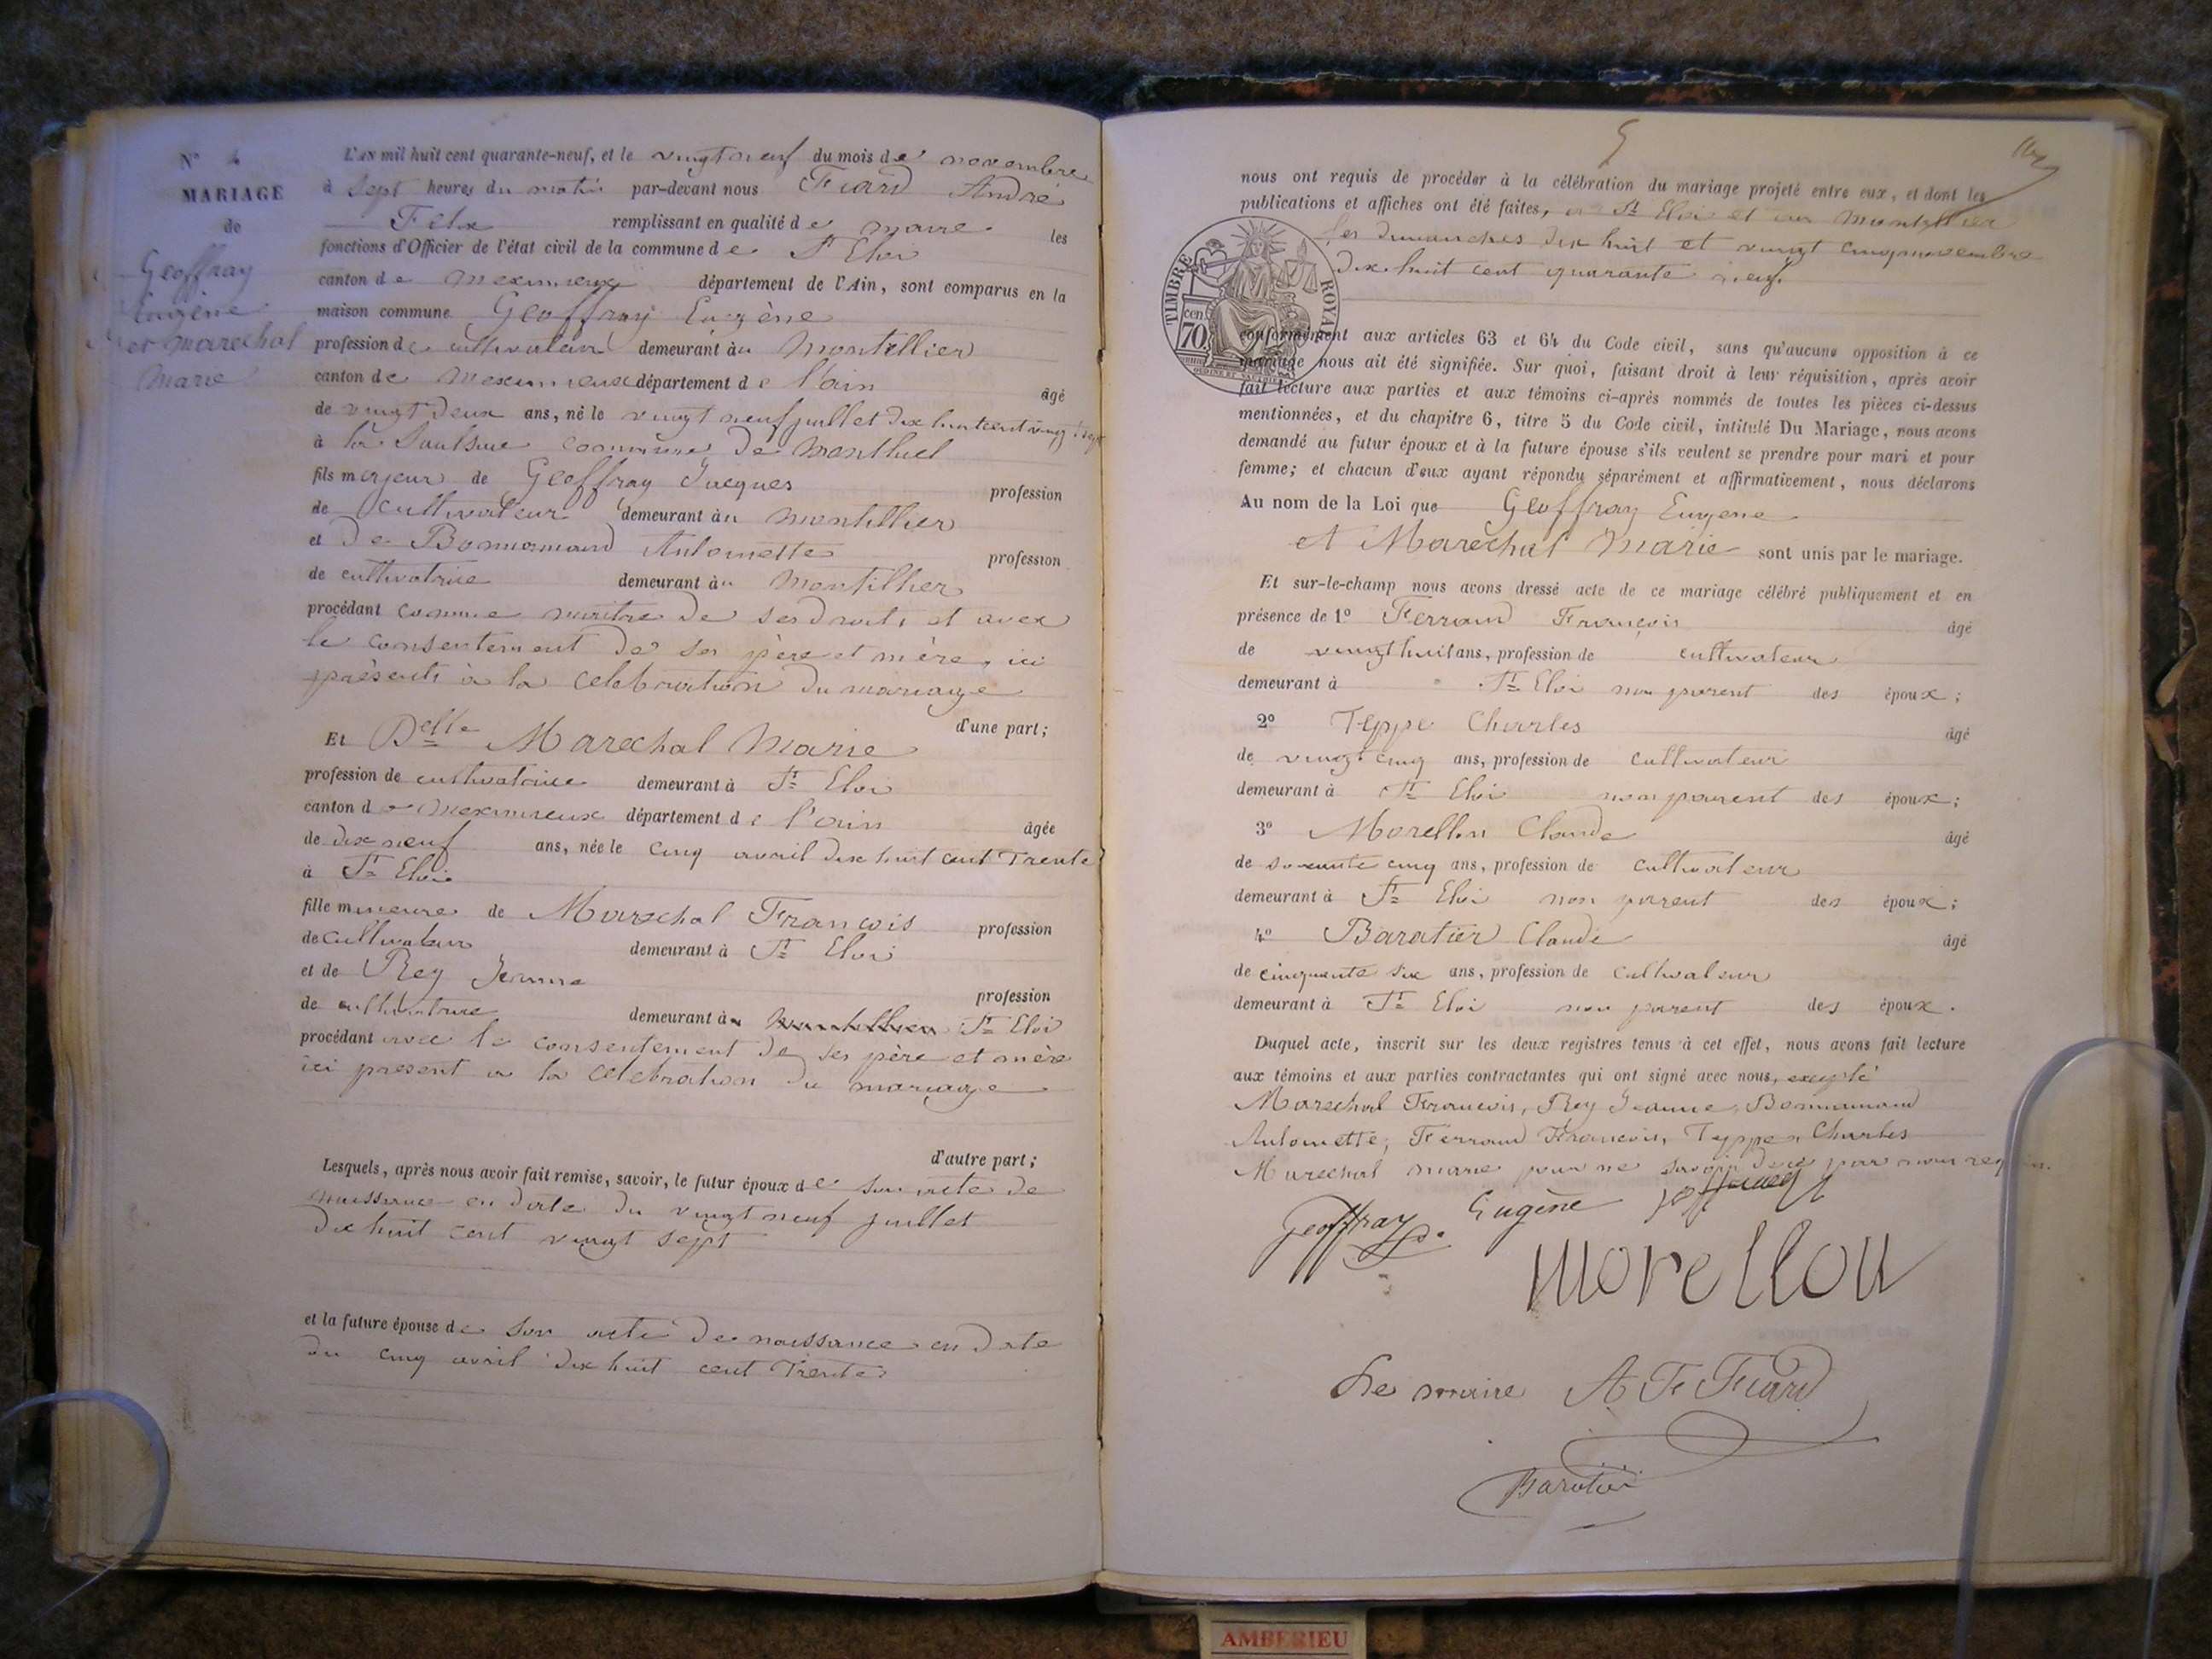 N° 4
MARIAGE
de
Geoffray
Eugène
et Marechal
Marie
L'an mil huit cent quarante-neuf, et le vingt neuf du mois de novembre
à Sept heures du matin par-devant nous Fiard André
Felix remplissant en qualité de maire les
fonctions d'Officier de l'état civil de la commune de St Eloi
canton de Meximieux département de l'Ain, sont comparus en la
maison commune Geoffray Eugène
profession de cultivateur demeurant au Montellier
canton de Meximieux département de l'ain âgé
de vingt deux ans, né le vingt neuf juillet dix huit cent vingt sept
à la Saulsaie commune de Montluel
fils majeur de Geoffray Jacques profession
de cultivateur demeurant au Montellier
et de Bonnamand Antoinette profession
de cultivatrice demeurant au Montellier
procédant comme maitre de ses droits et avec
le consentement de ses père et mère, ici
présents à la celebration du mariage
d'une part;
Et Delle Marechal Marie
profession de cultivatrice demeurant à St Eloi
canton de Meximieux département de l'ain âgée
de dix neuf ans, née le cinq avril dix huit cent Trente
à St Eloi
fille mineure de Marechal François profession
de cultivateur demeurant à St Eloi
et de Rey Jeanne profession
de cultivatrice demeurant à St Eloi
procédant avec le consentement de ses père et mère
ici present a la celebration du mariage
d'autre part;
Lesquels, après nous avoir fait remise, savoir, le futur époux de son acte de
naissance en date du vingt neuf juillet
dix huit cent vingt sept
et la future épouse de son acte de naissance en date
du cinq avril dix huit cent Trente
5
nous ont requis de procéder à la célébration du mariage projeté entre eux, et dont les
publications et affiches ont été faites, a St Eloi et au Montellier
les dimanches dix huit et vingt cinq novembre
dix huit cent quarante neuf
TIMBRE ROYAL
70 cen
conformément aux articles 63 et 64 du Code civil, sans qu'aucune opposition à ce
mariage nous ait été signifiée. Sur quoi, faisant droit à leur réquisition, après avoir
fait lecture aux parties et aux témoins ci-après nommés de toutes les pièces ci-dessus
mentionnées, et du chapitre 6, titre 5 du Code civil, intitulé Du Mariage, nous avons
demandé au futur époux et à la future épouse s'ils veulent se prendre pour mari et pour
femme; et chacun d'eux ayant répondu séparément et affirmativement, nous déclarons
Au nom de la Loi que Geoffray Eugene
et Marechal Marie sont unis par le mariage.
Et sur-le-champ nous avons dressé acte de ce mariage célébré publiquement et en
présence de 1° Ferrand François âgé
de vingt huit ans, profession de cultivateur
demeurant à St Eloi non parent des époux;
2° Teppe Charles âgé
de vingt cinq ans, profession de cultivateur
demeurant à St Eloi non parent des époux;
3° Morellon Claude âgé
de soixante cinq ans, profession de cultivateur
demeurant à St Eloi non parent des époux;
4° Baratier Claude âgé
de cinquante six ans, profession de cultivateur
demeurant à St Eloi non parent des époux.
Duquel acte, inscrit sur les deux registres tenus à cet effet, nous avons fait lecture
aux témoins et aux parties contractantes qui ont signé avec nous, excepté
Marechal François, Rey Jeanne, Bonnamand
Antoinette, Ferrand François, Teppe, Charles
Marechal Marie pour ne savoir de ce par nous requis.
Geoffray Eugène
morellon
Le maire A F Fiard
Baratier
AMBERIEU